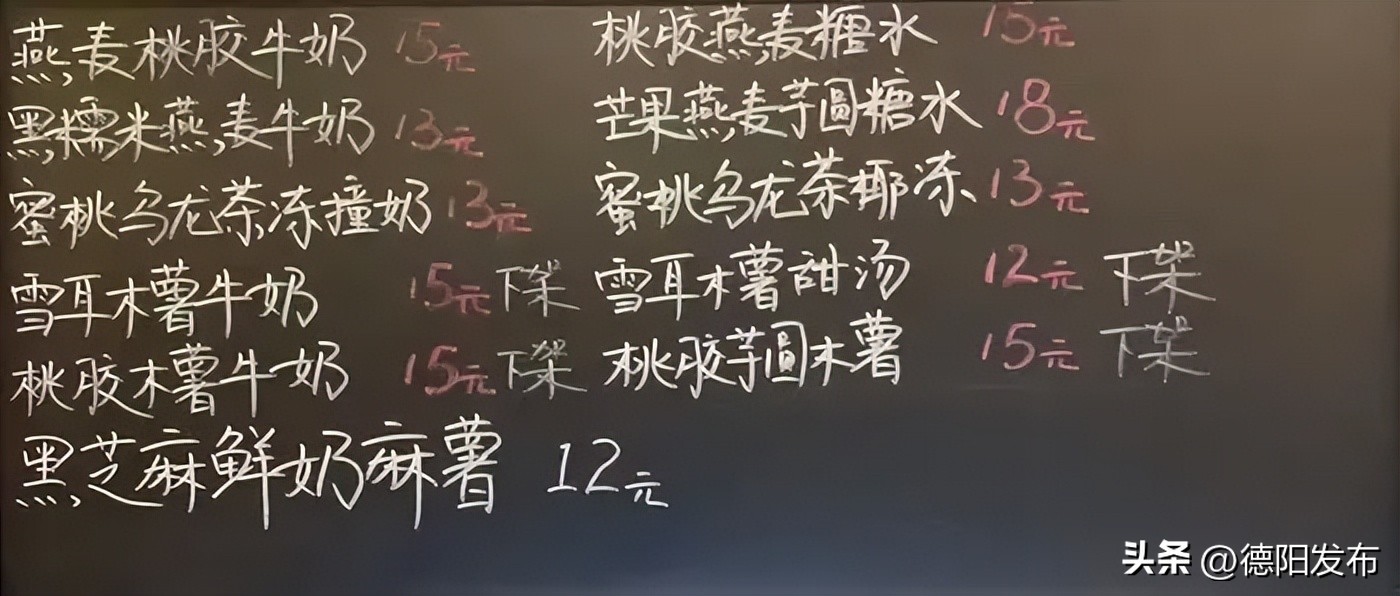 燕麦桃胶牛奶 15元
黑糯米燕麦牛奶 13元
蜜桃乌龙茶冻撞奶 13元
雪耳木薯牛奶 15元 下架
桃胶木薯牛奶 15元 下架
黑芝麻鲜奶麻薯 12元
桃胶燕麦糖水 15元
芒果燕麦芋圆糖水 18元
蜜桃乌龙茶椰冻 13元
雪耳木薯甜汤 12元 下架
桃胶芋圆木薯 15元 下架
头条 @德阳发布